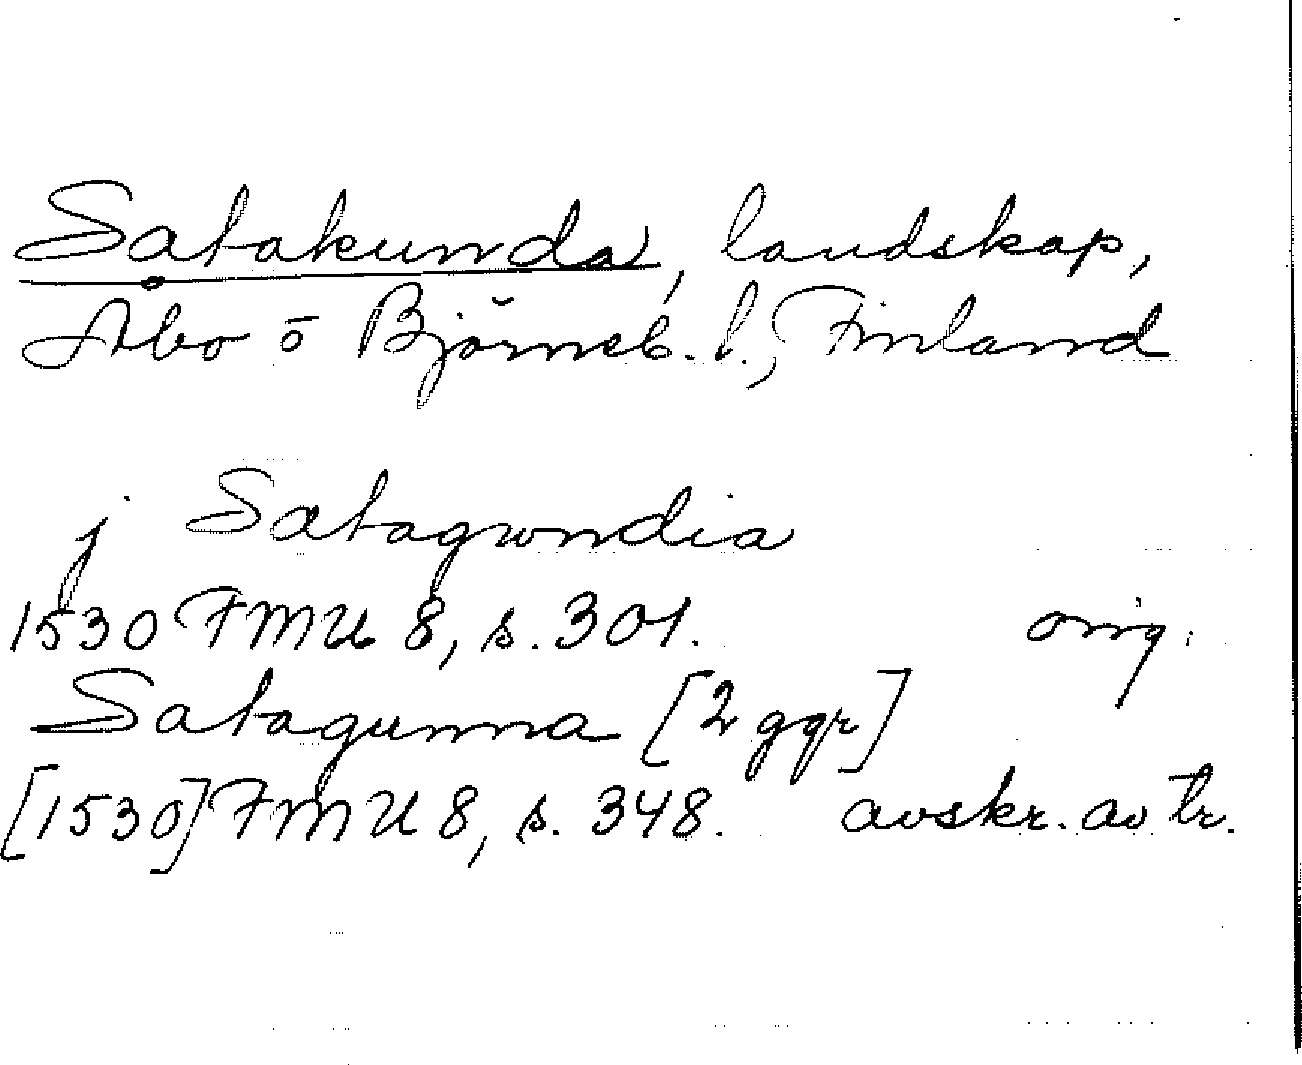 Satakunda, landskap,
Åbo o Björneb. l., Finland
j Satagwndia
1530 FMU 8, s. 301. orig.
Satagunna [2 ggr]
[1530] FMU 8, s. 348. avskr. av tr.